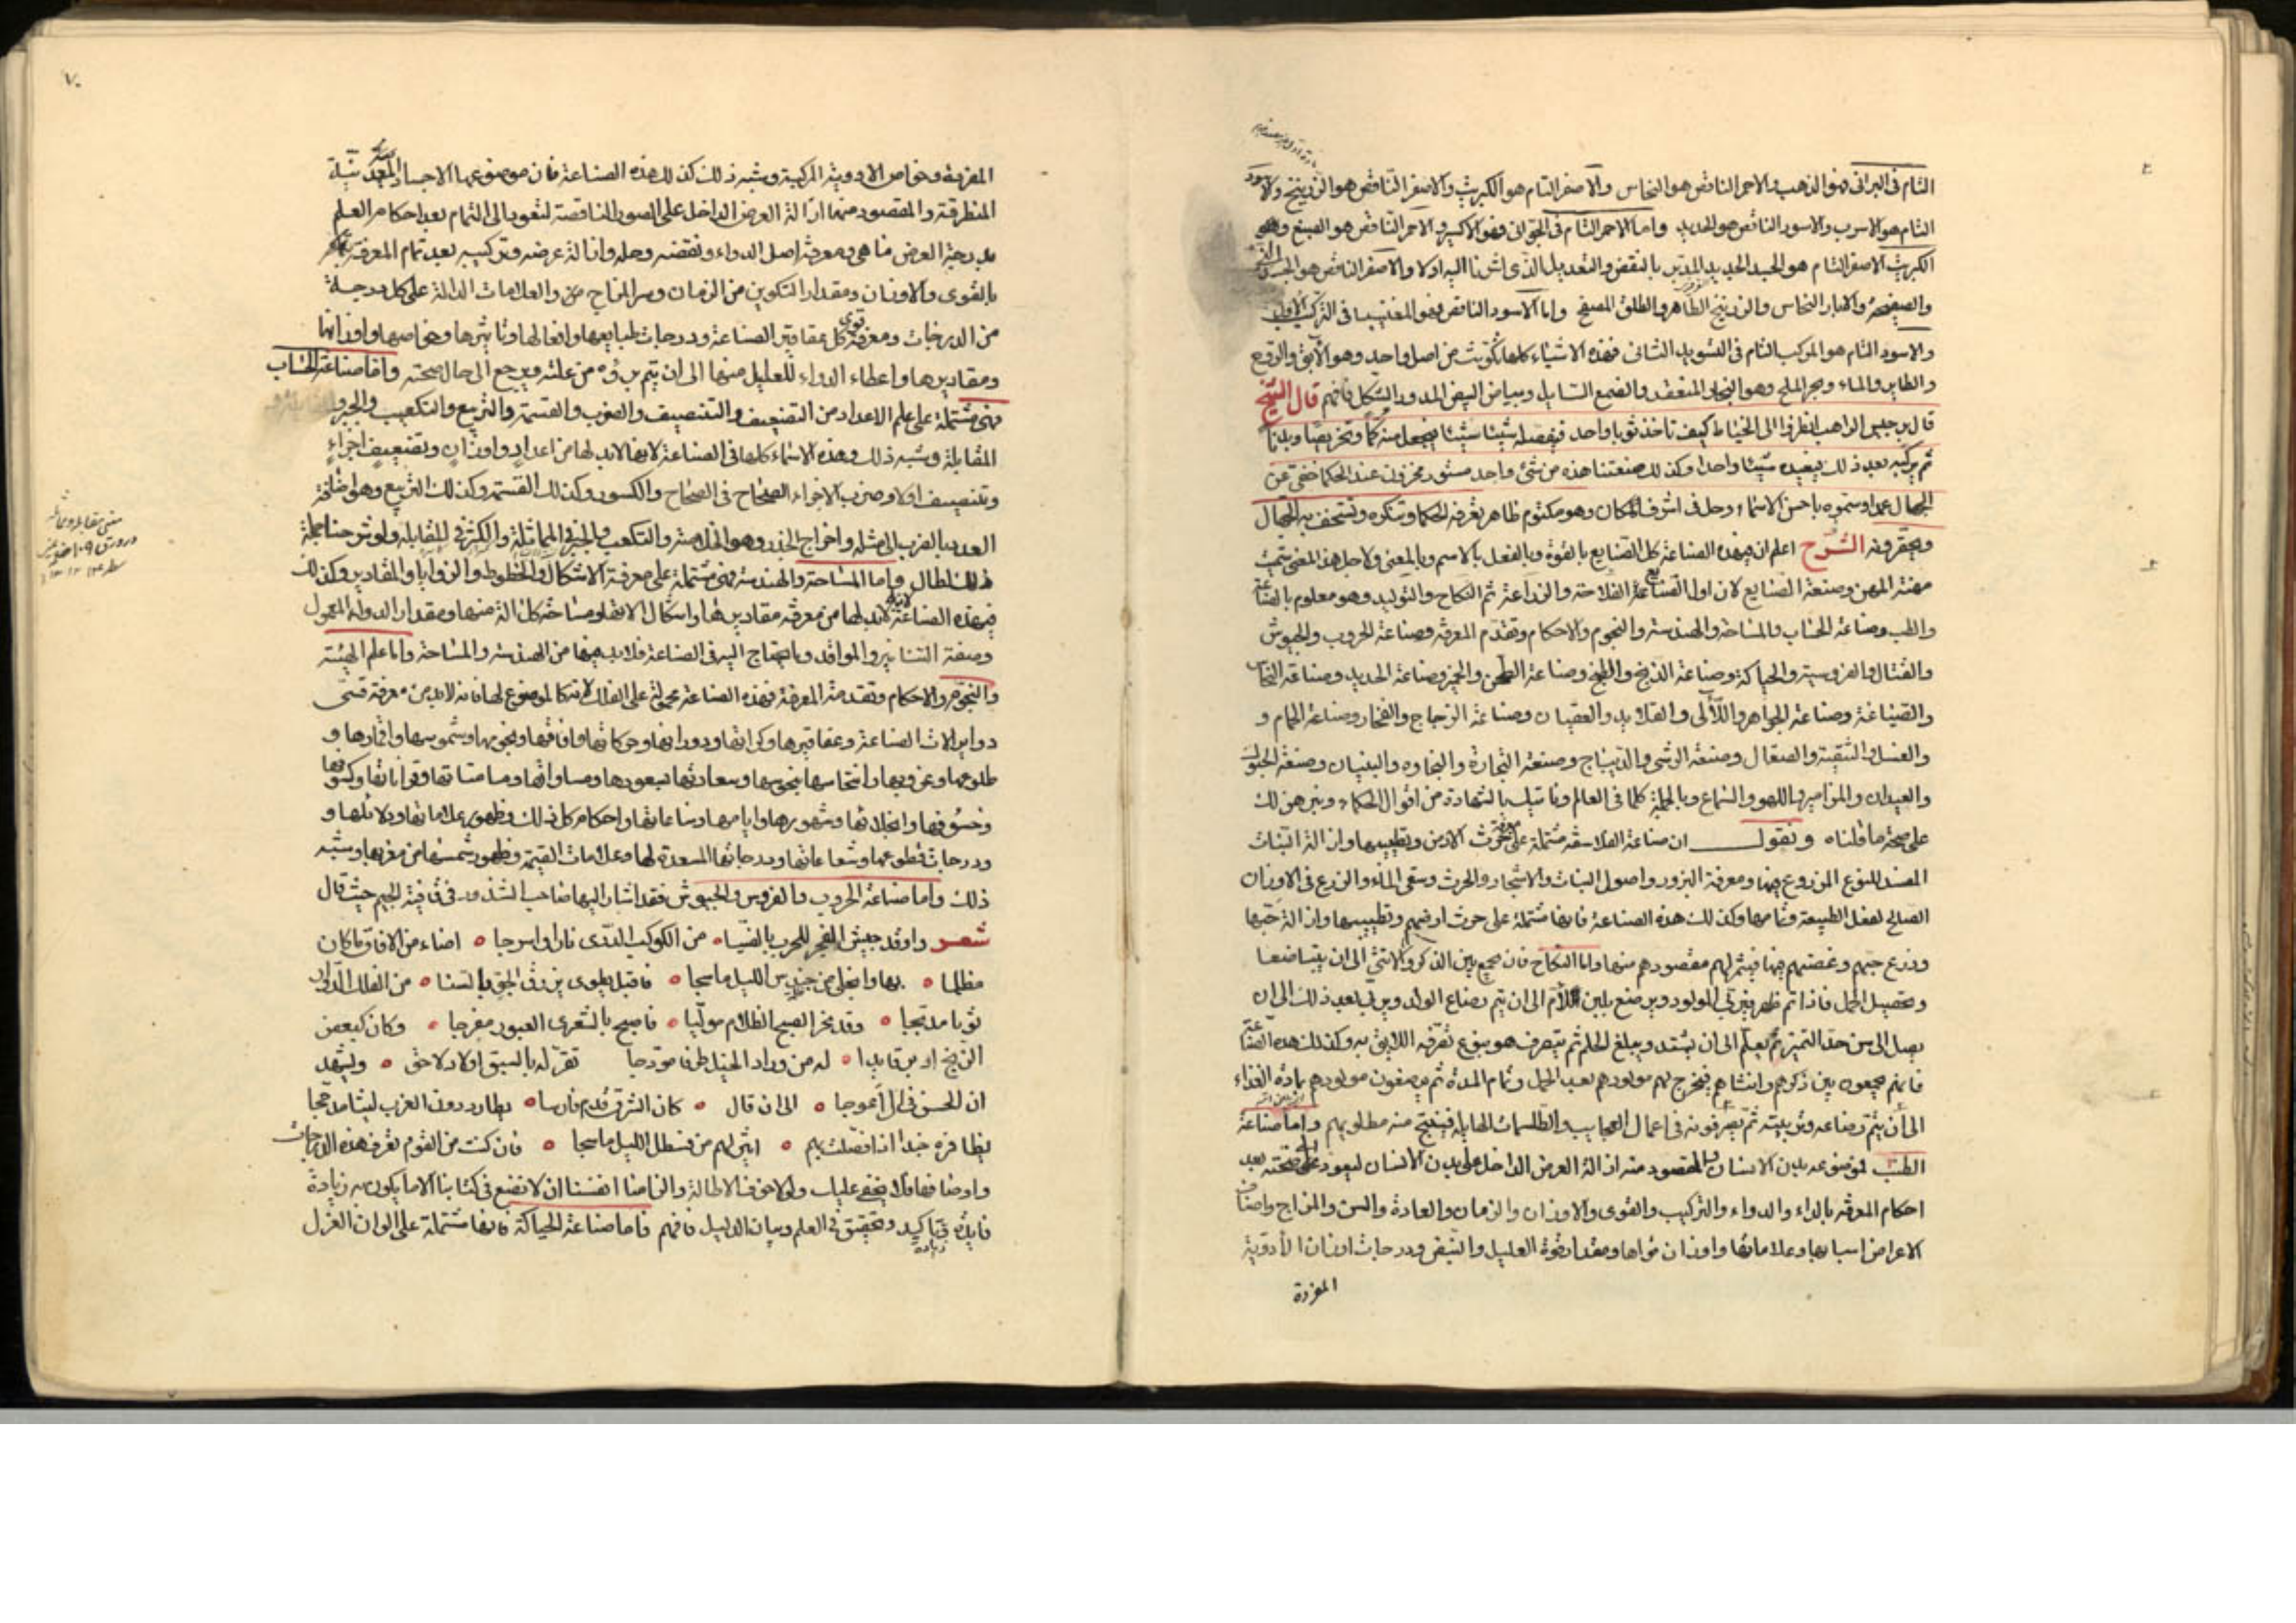 التام فى البرانى فهو الذهب والاحمر الناقص هو النحاس والاصفر التام هو الكبريت والاصفر الناقص هو الزرنيخ والاسود
التام هو الاسرب والاسود الناقص هو الحديد واما الاحمر التام فى الجوانى فهو الاكسير والاحمر الناقص هو الصبغ وهو
الكبريت الاصفر التام هو الجسد الجديد المدبر بالنقض والتعديل الذى اشرنا اليه اولا والاصفر الناقص هو الجسد
والصفيحة والابار النحاس والزرنيخ الطاهر والطلق المصفح واما الاسود الناقص فهو المغنيسيا فى التركيب الاول
والاسود التام هو المركب التام فى التسويد الثانى فهذه الاشياء كلها تكونت من اصل واحد وهو الآبق والروح
والطاير والماء وبحر الملح وهو البخار المنعقد والصمغ السايل وبياض البيض المدور الشكل فافهم قال الشيخ
قال برجيس الراهب انظروا الى الخياط كيف تاخذ ثوبا واحد فيفصله شيئا شيئا فيجعل منه كما وتخريصا وبدنا
ثم يركبه بعد ذلك فيعيده شيئا واحدا وكذلك صنعتنا هذه من شئ واحد مستور مخزون عند الحكما خفى عن
الجهال عمدا وسموه باحسن الاسماء وحل فى اشرف المكان وهو مكتوم ظاهر تعرفه الحكما وتنكره وتستخف به الجهال
ويحقرونه الشرح اعلم ان فى هذه الصناعة كل الصنايع بالقوة وبالفعل بالاسم وبالمعنى ولاجل هذا المعنى سميت
مهنة المهن وصنعة الصنايع لان اول الصنايع الفلاحة والزراعة ثم النكاح والتوليد وهو معلوم بالصناعة
والطب وصناعة الحساب والمساحة والهندسة والنجوم والاحكام وتقدم المعرفة وصناعة الحروب والجيوش
والقتال والفروسية والحياكة وصناعة الذبح والطبخ وصناعة الطحن والخبز وصناعة الحديد وصناعة النحاس
والصياغة وصناعة الجواهر واللآلى والقلايد والعقيان وصناعة الزجاج والفخار وصناعة الحمام و
والغسل والتنقية والصقال وصنعة الوشى والديباج وصنعة التجارة والنجاره والبنيان وصنعة الحبوب
والعيدان والمزامير واللهو والسماع وبالجملة كلما فى العالم وناتيك بالشهادة من اقوال الحكماء ونبرهن لك
على صحة ما قلناه ونقول ان صناعة الفلاسفة مشتملة على حرث الارض وتطييبها وازالة النبات
المفسد للنوع المزروع فيها ومعرفة البزور واصول النبات والاشجار والحرث وسقى الماء والزرع فى الاوزان
الصالح لفعل الطبيعة ونمامها وكذلك هذه الصناعة فانها مشتملة على حرث ارضهم وتطييبها وازالة خبثها
وزرع حبهم وغصنهم فيها فيثمر لهم مقصودهم منها واما النكاح فان يجمع بين الذكر والانثى الى ان يتباضعا
وتحصيل الحمل فاذا تم ظهر يربى المولود ويرضع بلبن الام الى ان يتم رضاع الولد ويربى بعد ذلك الى ان
يصل الى سن حد التميز ثم يعلم الى ان يشتد ويبلغ الحلم ثم يتصرف هو بنوع تصرفه اللايق به وكذلك هذه الصناعة
فانهم يجمعون بين ذكرهم وانثاهم فيخرج لهم مولودهم بعد الحمل وتمام المدة ثم يرضعون مولودهم بمادة الغذاء
الى ان يتم رضاعه وتربيته ثم يصرفونه فى اعمال العجايب والطلسمات الهايلة فينتج منه مطلوبهم واما صناعة
الطب فموضوعه بدن الانسان والمقصود منه ازالة العرض الداخل على بدن الانسان ليعود على صحته بعد
احكام المعرفة بالداء والدواء والتركيب والقوى والاوزان والزمان والعادة والسن والمزاج واصناف
الاعراض اسبابها وعلاماتها واوزان قواها ومقدار قوة العليل والنبض ودرجات اوزان الأدوية
المفردة
٧٠
المفردة وخواص الادوية المركبة وشبه ذلك كذلك هذه الصناعة فان موضوعها الاجساد المعدنية
المنطرقة والمقصود منها ازالة العرض الداخل على الصور الناقصة لتعود الى التمام بعد احكام العلم
بدرجة العرض ما هى ومعرفة اصل الدواء ونقضه وحله وازالة عرضه وتركيبه بعد تمام المعرفة
بالقوى والاوزان ومقدار التكوين من الزمان وسر المزاج والعلامات الدالة على كل درجة
من الدرجات ومعرفة قوى كل عقاقير الصناعة ودرجات طبايعها وافعالها وتاثيرها وخواصها واوزانها
ومقاديرها واعطاء الدواء للعليل منها الى ان يتم برؤه من علته ويرجع الى حال صحته واما صناعة الحساب
فهى مشتملة على علم الاعداد من التضعيف والتنصيف والضرب والقسمة والتربيع والتكعيب والجبر و
المقابلة وشبه ذلك وهذه الاشياء كلها فى الصناعة لانها لابد لها من اعداد واوزان وتضعيف اجزاء
وتنصيف اولا وضرب الاجزاء الصحاح فى الصحاح والكسور وكذلك القسمة وكذلك التربيع وهو اضافة
العدد بالضرب الى مثله واخراج الجذر وهو الخلاصة والتكعيب والجبر فى المماثلة والكثرة فى المقابلة ولو شرحنا جملة
ذلك لطال واما المساحة والهندسة فهى مشتملة على معرفة الاشكال والخطوط والزوايا والمقادير وكذلك
فى هذه الصناعة لابد لها من معرفة مقاديرها واشكال الاتها ومساحة كل الة منها ومقدار الدواء المعمول
وصفة التنانير والمواقد وما يحتاج اليه فى الصناعة فلابد فيها من الهندسة والمساحة واما علم الهيئة
والنجوم والاحكام وتقدمة المعرفة فهذه الصناعة محمولة على الفلك لانه كالموضوع لها فانه لابد من معرفة قسى
دواير الات الصناعة وعقاقيرها وكراتها ودورانها وحركاتها وافاقها ونجومها وشموسها واقمارها و
طلوعها وغروبها وانتحاسها بنحوسها وسعادتها بسعودها ومساواتها ومسامتاتها وقراناتها وكسوفها
وخسوفها وانجلائها وشهورها وايامها وساعاتها واحكام كل ذلك وظهور علاماتها ودلائلها و
ودرجات قطوعها وشعاعاتها ودرجاتها المسعدة لها وعلامات القيمة وظهور شمسها من مغربها وشبه
ذلك واما صناعة الحروب والفروس والجيوش فقد اشار اليها صاحب الشذور فى قافية الجيم حيث قال
شعر واوقد جيش الفجر للحرب بالضيا من الكوكب الدرى نارا واسرجا اضاء من الافاق ما كان
مظلما بها وانجلى من حندس الليل ما سجا فاقبل يطوى بزرق الجو بالسنا من الفلك الدوار
ثوبا مدبجا وقد نحر الصبح الظلام موليا فاصبح بالشعرى العبور مفرجا وكان كبعض
الزنج ادبر قايدا له من وراد الخيل طرفا مودجا تقر له بالسبق اولاد لاحق ويشهد
ان الحسن فى ال اعوجا الى ان قال كان الشرق قدم فارسا يطارد دون الغرب ليثا مدججا
بظافره خدا اذا فضلت بهم اثير لهم من قسطل الليل ما سجا فان كنت من القوم تعرف هذه الدرجات
واوضاعها فلا يخفى عليك ولولا خوف الاطالة والزامنا انفسنا ان لا نضع فى كتابنا الا ما يكون به زيادة
فايدة فى تاكيد وتحقيق فى العلم وبيان الدليل فافهم فاما صناعة الحياكة فانها مشتملة على الوان الغزل